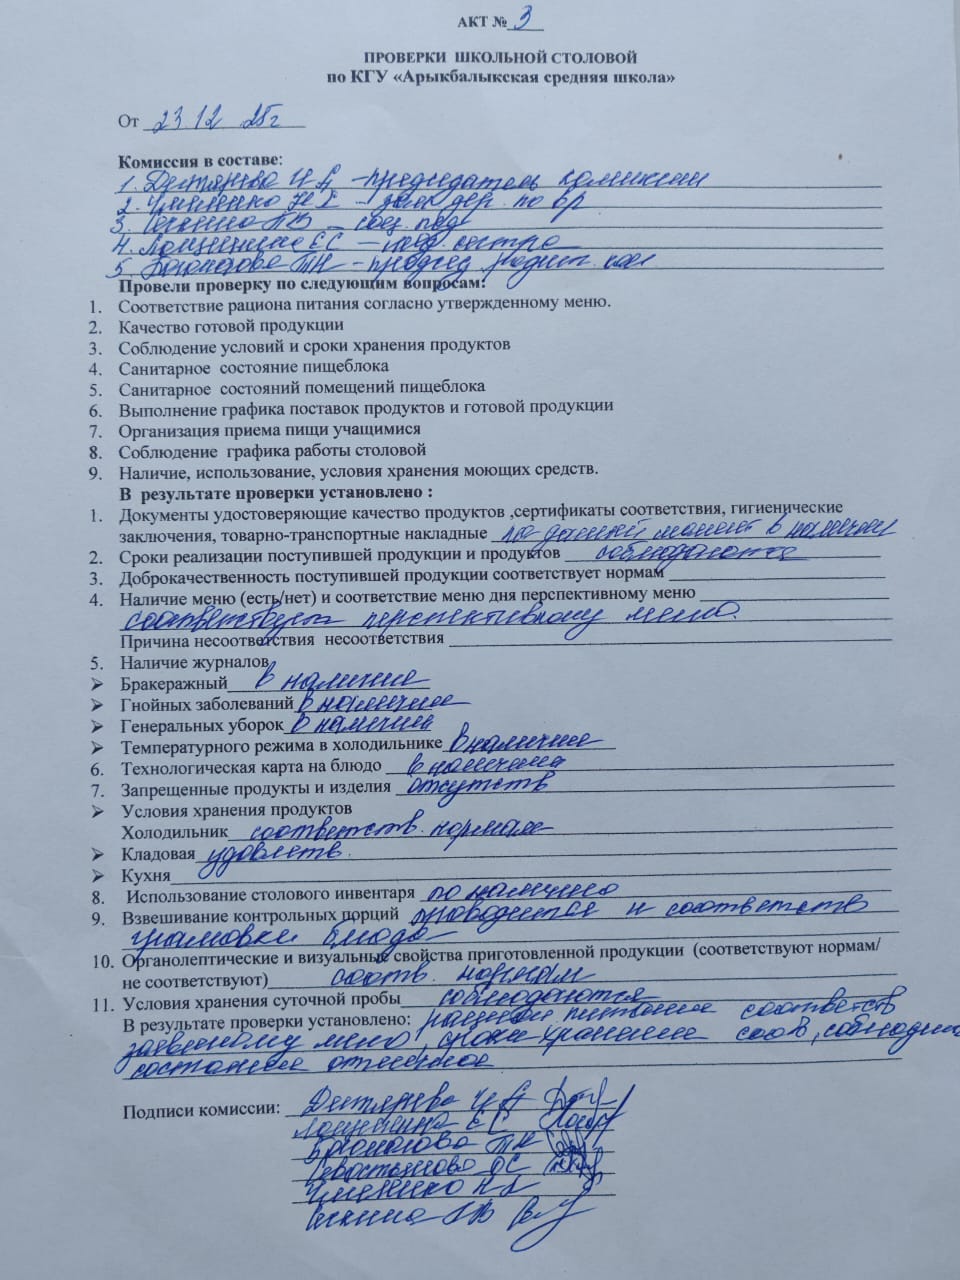 АКТ № 3
ПРОВЕРКИ ШКОЛЬНОЙ СТОЛОВОЙ
по КГУ «Арыкбалыкская средняя школа»
От 23.12 25г
Комиссия в составе:
1. Дегтярева Н А - председатель комиссии
2. Уманенко Н К - зам дир. по вр
3. - соц. пед
4. Лощинина ЕС - мед сестра
5. ТН - председ родит. ком
Провели проверку по следующим вопросам:
1. Соответствие рациона питания согласно утвержденному меню.
2. Качество готовой продукции
3. Соблюдение условий и сроки хранения продуктов
4. Санитарное состояние пищеблока
5. Санитарное состояний помещений пищеблока
6. Выполнение графика поставок продуктов и готовой продукции
7. Организация приема пищи учащимися
8. Соблюдение графика работы столовой
9. Наличие, использование, условия хранения моющих средств.
В результате проверки установлено :
1. Документы удостоверяющие качество продуктов ,сертификаты соответствия, гигиенические
заключения, товарно-транспортные накладные в наличии
2. Сроки реализации поступившей продукции и продуктов соблюдаются
3. Доброкачественность поступившей продукции соответствует нормам
4. Наличие меню (есть/нет) и соответствие меню дня перспективному меню
соответствует перспективному меню.
Причина несоответствия несоответствия
5. Наличие журналов
➢ Бракеражный в наличие
➢ Гнойных заболеваний в наличие
➢ Генеральных уборок в наличии
➢ Температурного режима в холодильнике в наличие
6. Технологическая карта на блюдо в наличии
7. Запрещенные продукты и изделия отсутств
➢ Условия хранения продуктов
Холодильник соответств. нормам
➢ Кладовая удовлетв.
➢ Кухня
8. Использование столового инвентаря по наличию
9. Взвешивание контрольных порций проводится и соответств
граммовки блюда
10. Органолептические и визуальные свойства приготовленной продукции (соответствуют нормам/
не соответствуют) соотв. нормам
11. Условия хранения суточной пробы соблюдаются
В результате проверки установлено: рацион питание соответств
заявленному меню, сроки хранение соотв,
состояние отличное
Подписи комиссии: Дегтярева Н А
Лощинина ЕС
ТН
Севостьянова ОС
Уманенко Н К